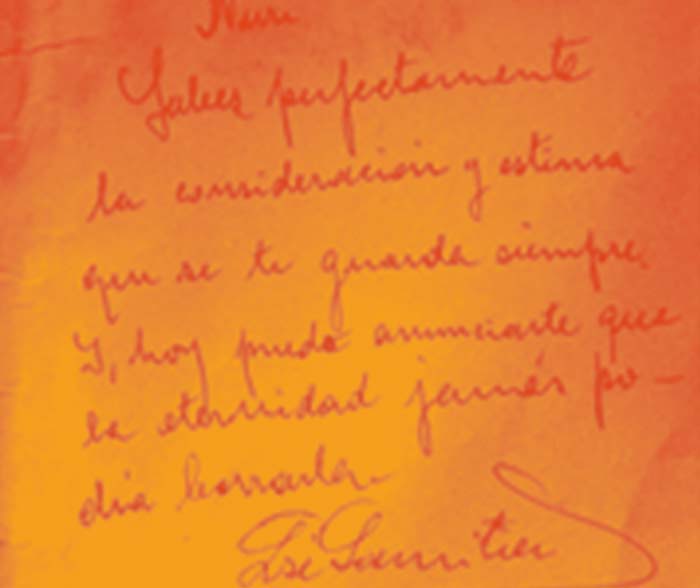 Nuri
Sabes perfectamente
la consideracion y estima
que se te guarda siempre.
Y, hoy puedo anunciarte que
la eternidad jamás po-
dría borrarla.